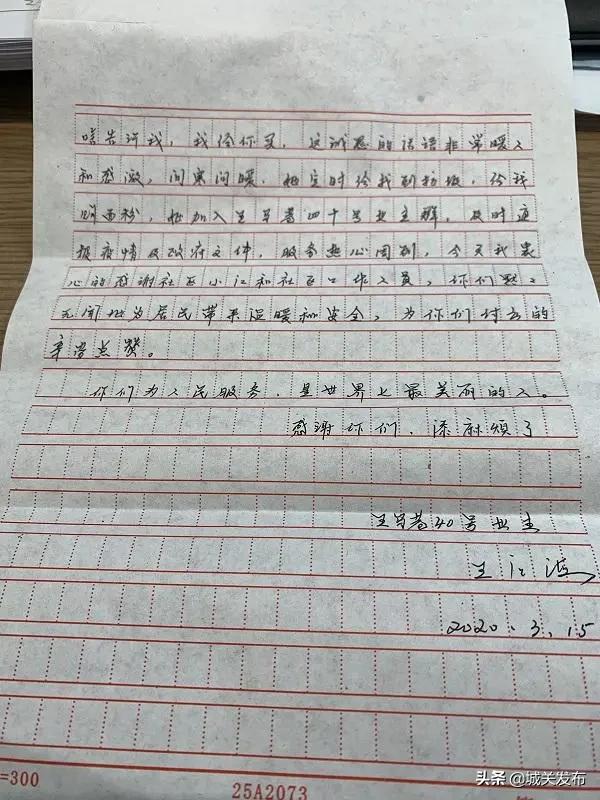 啥告诉我，我给你买，这诚恳的话语非常暖人
和感激，问寒问暖，她定时给我倒垃圾，给我
加入 四十号业主群，及时通
报疫情及政府文件，服务热心周到，今天我衷
心的感谢社区小江和社区工作人员，你们默默
无闻地为居民带来温暖和安全，为你们付出的
辛劳点赞。
你们为人民服务，是世界上最美丽的人。
感谢你们，添麻烦了
40号业主
王
2020.3.15
=300
25A2073
头条@城关发布